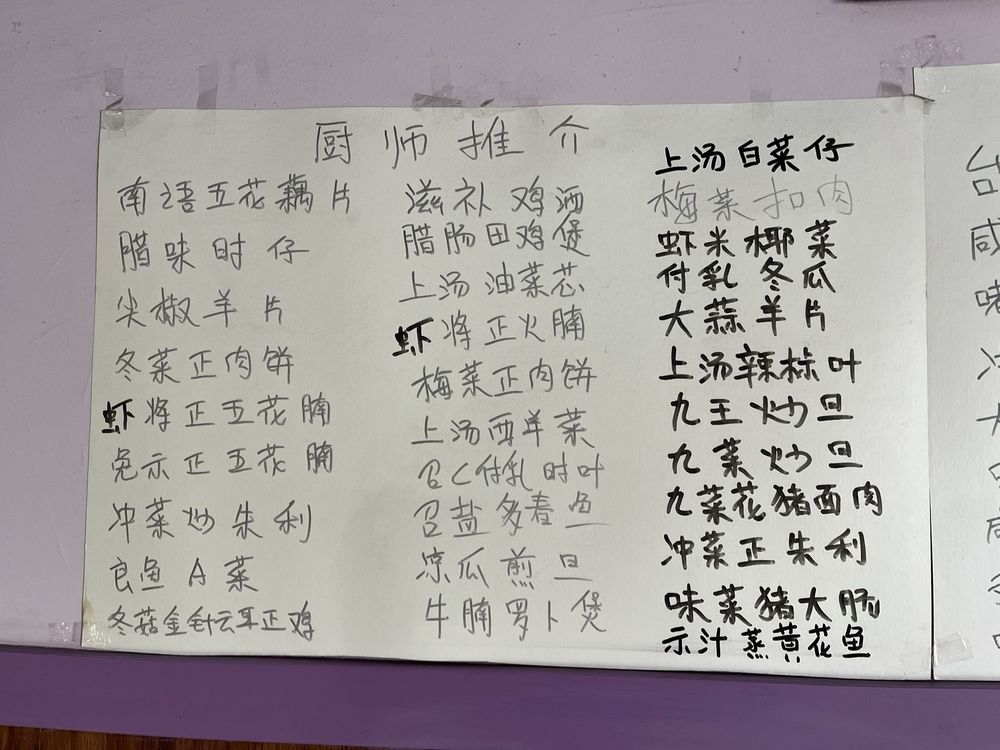 厨师推介
南语五花藕片
腊味时仔
尖椒羊片
冬菜正肉饼
虾将正五花腩
兔示正五花腩
冲菜炒朱利
良鱼A菜
冬菇金针云耳正鸡
滋补鸡酒
腊肠田鸡煲
上汤油菜芯
虾将正火腩
梅菜正肉饼
上汤西羊菜
召C付乳时叶
召盐多春鱼
凉瓜煎旦
牛腩罗卜煲
上汤白菜仔
梅菜扣肉
虾米椰菜
付乳冬瓜
大蒜羊片
上汤辣标叶
九王炒旦
九菜炒旦
九菜花猪面肉
冲菜正朱利
味菜猪大肠
示汁蒸黄花鱼
台
咸